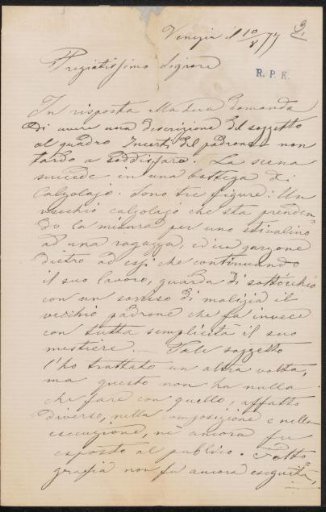 Venezia il 10/8 77
Pregiatissimo Signore
R. P. E.
In risposta alla sua domanda
di avere una descrizione del soggetto
al quadro Incerti del padrone non
tardo a soddisfare. La scena
succede in una bottega di
Calzolajo. Sono tre figure: Un
vecchio calzolajo che sta prenden-
do la misura per uno stivalino
ad una ragazza, ed un garzone
dietro ad essi che continuando
il suo lavoro, guarda di sottecchio
con un sorriso di malizia il
vecchio padrone che fa invece
con tutta semplicità il suo
mestiere. — Tale soggetto
l'ho trattato un altra volta,
ma questo non ha nulla
che fare con quello, affatto
diverso, nella composizione e nella
esecuzione, nè ancora fu
esposto al publico. Foto
grafia non fu ancora eseguita,